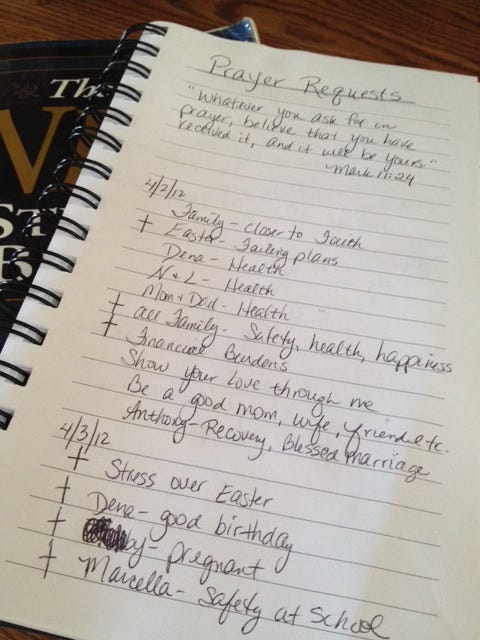 The
Prayer Requests
"Whatever you ask for in
prayer, believe that you have
received it, and it will be yours."
Mark 11:24
4/2/12
Family - closer to Faith
† Easter - Failing plans
Dena - Health
N & L - Health
Mom & Dad - Health
† All Family - Safety, health, happiness
† Financial Burdens
Show your Love through me
Be a good mom, wife, friend etc.
Anthony - Recovery, Blessed Marriage
4/3/12
† Stress over Easter
† Dena - good birthday
† by - pregnant
† Marcella - Safety at School